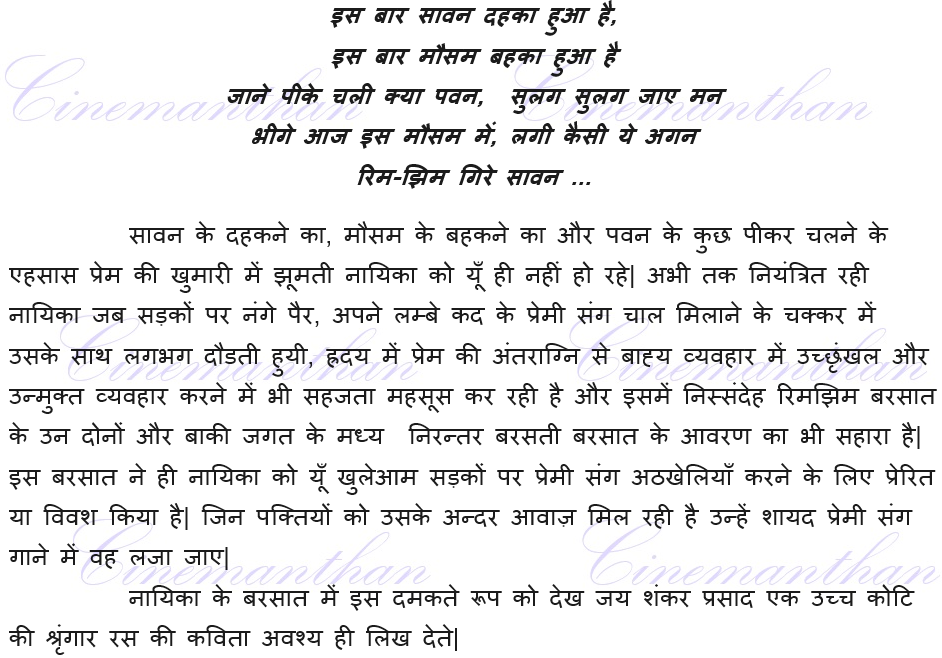 इस बार सावन दहका हुआ है,
इस बार मौसम बहका हुआ है
जाने पीके चली क्या पवन, सुलग सुलग जाए मन
भीगे आज इस मौसम में, लगी कैसी ये अगन
रिम-झिम गिरे सावन ...
सावन के दहकने का, मौसम के बहकने का और पवन के कुछ पीकर चलने के
एहसास प्रेम की खुमारी में झूमती नायिका को यूँ ही नहीं हो रहे| अभी तक नियंत्रित रही
नायिका जब सड़कों पर नंगे पैर, अपने लम्बे कद के प्रेमी संग चाल मिलाने के चक्कर में
उसके साथ लगभग दौडती हुयी, ह्रदय में प्रेम की अंतराग्नि से बाह्य व्यवहार में उच्छृंखल और
उन्मुक्त व्यवहार करने में भी सहजता महसूस कर रही है और इसमें निस्संदेह रिमझिम बरसात
के उन दोनों और बाकी जगत के मध्य निरन्तर बरसती बरसात के आवरण का भी सहारा है|
इस बरसात ने ही नायिका को यूँ खुलेआम सड़कों पर प्रेमी संग अठखेलियाँ करने के लिए प्रेरित
या विवश किया है| जिन पक्तियों को उसके अन्दर आवाज़ मिल रही है उन्हें शायद प्रेमी संग
गाने में वह लजा जाए|
नायिका के बरसात में इस दमकते रूप को देख जय शंकर प्रसाद एक उच्च कोटि
की श्रृंगार रस की कविता अवश्य ही लिख देते|
Cinemanthan Cinemanthan
Cinemanthan Cinemanthan
Cinemanthan Cinemanthan